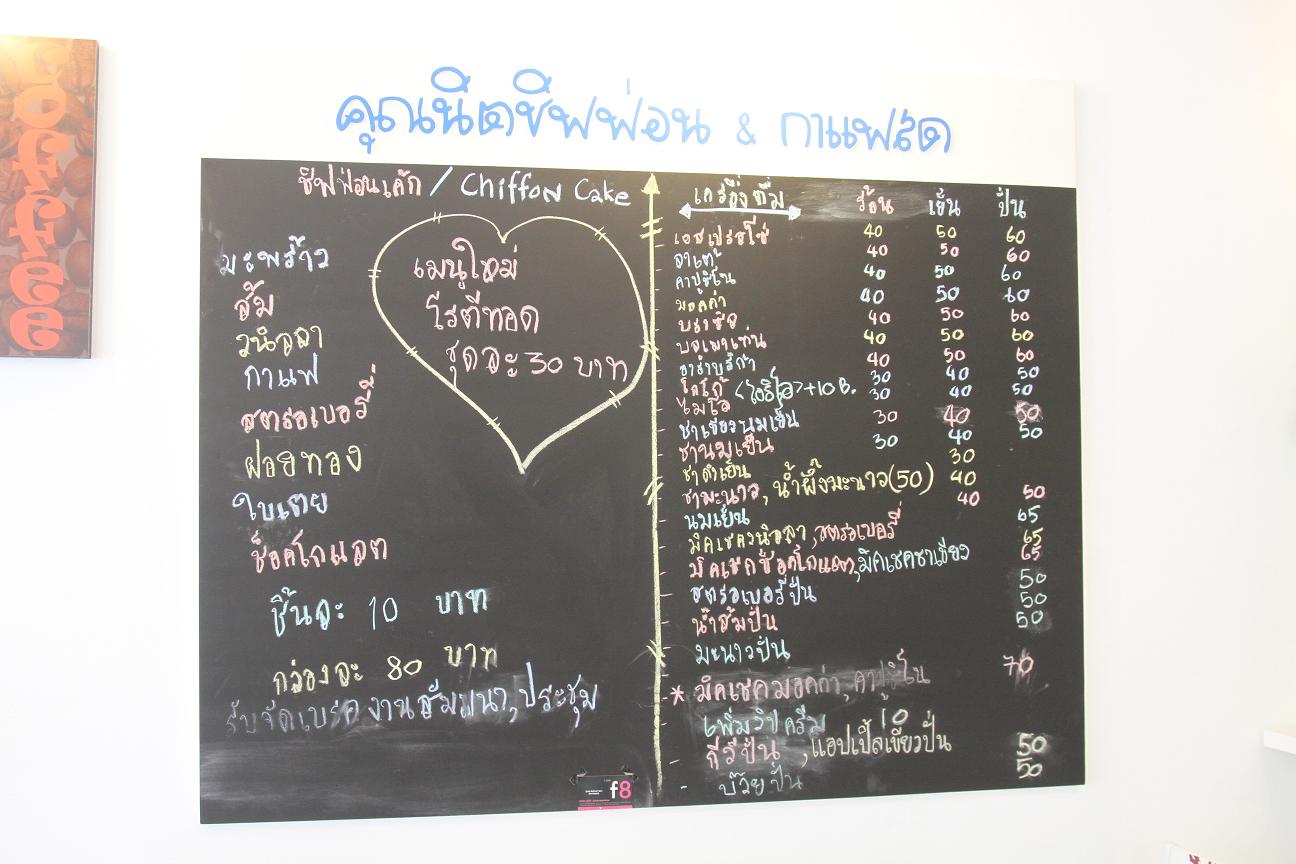 COFFEE
คุณนิตชิฟฟ่อน & กาแฟสด
ชิฟฟ่อนเค้ก / Chiffon Cake
มะพร้าว
ส้ม
วนิลลา
กาแฟ
สตรอเบอรี่
ฝอยทอง
ใบเตย
ช็อคโกแลต
ชิ้นละ 10 บาท
กล่องละ 80 บาท
รับจัดเบรค งานสัมมนา, ประชุม
เมนูใหม่
โรตีทอด
ชุดละ 30 บาท
f8
เครื่องดื่ม ร้อน เย็น ปั่น
เอสเปรสโซ่ 40 50 60
ลาเต้ 40 50 60
คาปูชิโน 40 50 60
มอคค่า 40 50 60
บราซิล 40 50 60
บลูเมาเท่น 40 50 60
อาราบริก้า 40 50 60
โกโก้ <โอริโอ>+10 B. 30 40 50
ไมโล 30 40 50
ชาเขียวนมเย็น 30 40 50
ชานมเย็น 30 40 50
ชาดำเย็น 30
ชามะนาว, น้ำผึ้งมะนาว(50) 40
นมเย็น 40 50
มิคเชควนิลลา, สตรอเบอรี่ 65
มิคเชคช็อคโกแลต, มิคเชคชาเขียว 65
65
สตรอเบอรี่ปั่น 50
น้ำส้มปั่น 50
มะนาวปั่น 50
* มิคเชคมอคค่า, คาปูชิโน 70
เพิ่มวิปครีม 10
- กีวีปั่น, แอปเปิ้ลเขียวปั่น 50
- บ๊วยปั่น 50